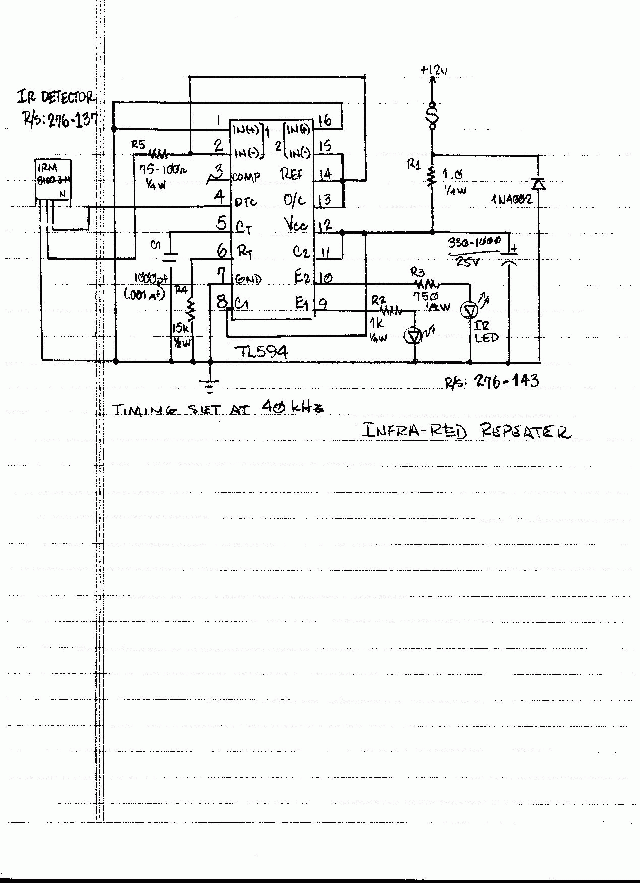 +12V
IR DETECTOR
R/S: 276-137
IRM
N
R5
75-100Ω
1/4 W
1 IN(+) 1 2 IN(+) 16
2 IN(-) IN(-) 15
3 COMP REF 14
4 DTC O/C 13
5 CT VCC 12
6 RT C2 11
7 GND E2 10
8 C1 E1 9
TL594
R1
1.0
1/4 W
1N4002
1000pf
(.001 µf)
R4
15k
1/2 W
R3
750
1/2W
R2
1k
1/4W
IR
LED
330-1000
25V
+
R/S: 276-143
TIMING SET AT 40 kHz
INFRA-RED REPEATER